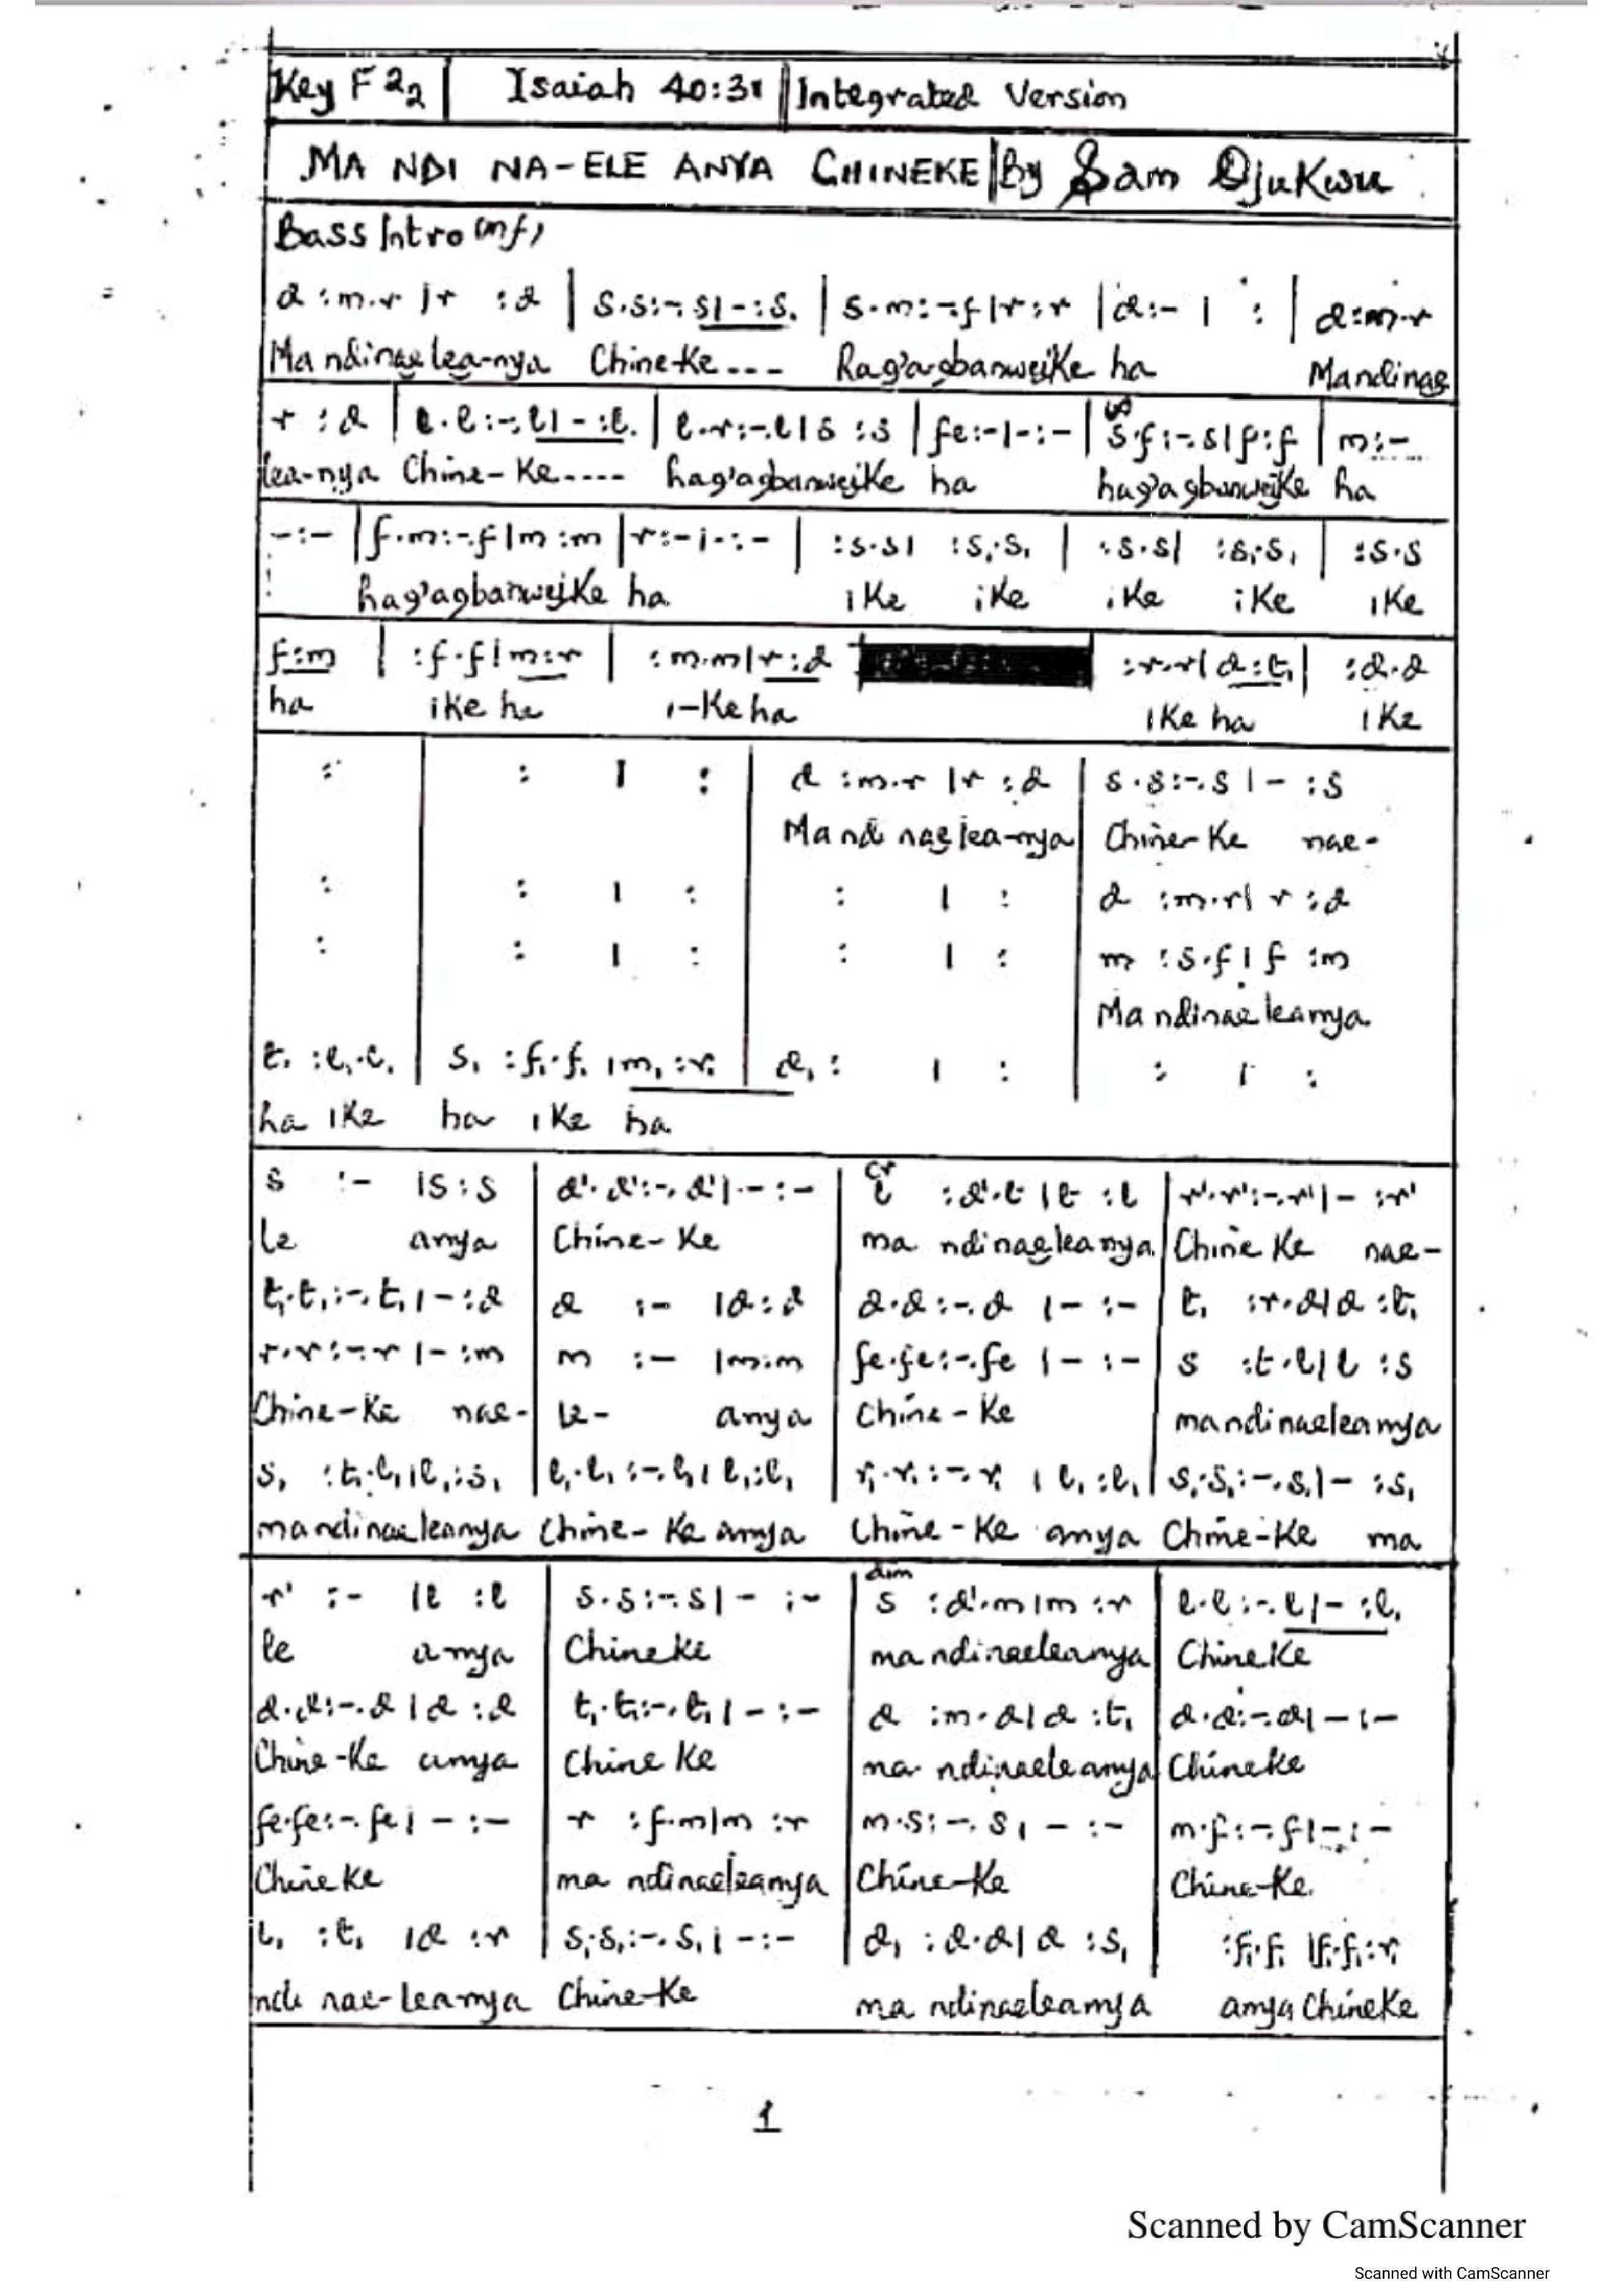 Key F 2/2 | Isaiah 40:31 || Integrated Version
MA NDI NA-ELE ANYA CHINEKE | By Sam Ojukwu
Bass Intro (mf)
d :m.r |r :d | s.s:-.s|-:s, | s.m:-.f|r:r | d:- | : | d:m.r
Mandinaelea-nya Chine-Ke--- Hag'agbanweiKe ha Mandinae
r :d | l.l:-.l|-:l, | l.r:-.l|s :s | fe:-|-:- | s.f:-.s|f:f | m:-
lea-nya Chine-Ke---- hag'agbanweiKe ha hag'agbanweiKe ha
-:- | f.m:-.f|m :m | r:-|-:- | :s.s| :s,.s, | :s.s| :s,.s, | :s.s
hag'agbanweiKe ha iKe iKe iKe iKe iKe
f:m | :f.f|m:r | :m.m|r:d :r.r|d:t,| :d.d
ha ike ha i-Ke ha iKe ha iKe
: | : | : | d :m.r |r :d | s.s:-.s |- :s
Mandi naelea-nya Chine-Ke nae-
: | : | : | : | : | d :m.r| r :d
: | : | : | : | : | m :s.f| f :m
Mandinaeleanya
t, :l,.l, | s, :f,.f, |m, :r, | d, : | : | : | :
ha iKe ha iKe ha
s :- |s:s | d'.d':-.d'|-:- | cr l :d'.t |t :l | r'.r':-.r'|- :r'
le anya Chine-Ke ma ndinaeleanya Chine Ke nae-
t,.t,:-.t,|-:d | d :- |d:d | d.d:-.d |- :- | t, :r.d|d :t,
r.r:-.r |- :m | m :- |m:m | fe.fe:-.fe |- :- | s :t.l|l :s
Chine-Ke nae- le- anya Chine-Ke mandinaeleanya
s, :t,.l,|l,:s, | l,.l,:-.l,| l,:l, | r,.r,:-.r, | l, :l, | s,.s,:-.s,|- :s,
mandinaeleanya Chine-Ke anya Chine-Ke anya Chine-Ke ma
r' :- |l :l | s.s:-.s|- :- | dim s :d'.m|m :r | l.l:-.l|-:l,
le anya ChineKe ma ndinaeleanya ChineKe
d.d:-.d |d :d | t,.t,:-.t,|-:- | d :m.d|d :t, | d.d:-.d|-:-
Chine-Ke anya Chine Ke ma ndinaeleanya Chineke
fe.fe:-.fe|-:- | r :f.m|m :r | m.s:-.s|-:- | m.f:-.f|-:-
ChineKe ma ndinaeleanya Chine-Ke Chine-Ke
l, :t, |d :r | s,.s,:-.s,|-:- | d, :d.d|d :s, | :f,.f, |f,.f,:r,
ndi nae-leanya Chine-Ke ma ndinaeleanya anya ChineKe
1
Scanned by CamScanner
Scanned with CamScanner